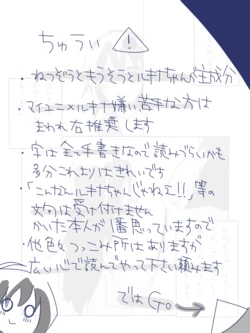 ちゅうい
・ねつぞうともうそうとルキナちゃんが主成分
・マイユニ×ルキナ嫌い苦手な方は
まわれ右推奨します
・字は全て手書きなので読みづらいかも
多分これよりはきれいです
・「こんなんルキナちゃんじゃねえ!!」等の
文句は受け付けません
かいた本人が1番思っていますので
・他色々つっこみ所はありますが
広い心で読んでやって下さい頼みます
ではGo